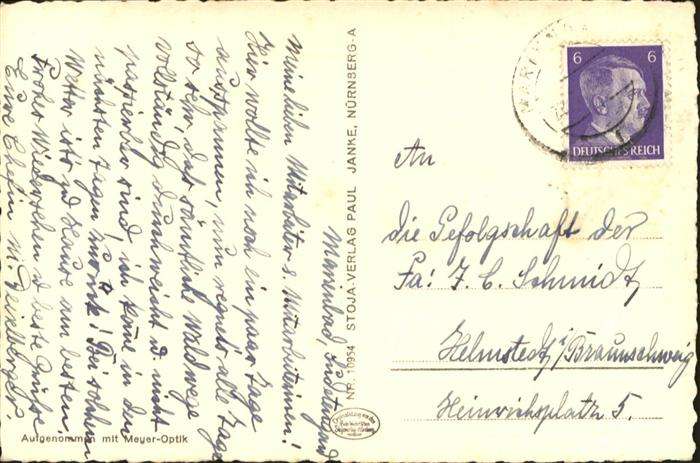 Marienbad, Sudetengau
Meine lieben Mitarbeiter u. Mitarbeiterinnen!
Hier wollte ich noch ein paar Tage
ausspannen, nun regnet's alle Tage
so sehr, daß sämtliche Waldwege
vollständig durchweicht u. nicht
passierbar sind, ich komme in den
nächsten Tagen zurück! Bei solchem
Wetter ist's zu Hause am besten.
Frohes Wiedersehen u. beste Grüße
Eure Chefin
Aufgenommen mit Meyer-Optik
NR. 10954 STOJA-VERLAG PAUL JANKE, NÜRNBERG-A
6 6
DEUTSCHES REICH
An
die Gefolgschaft der
Fa: F. C. Schmidt,
Helmstedt i/Braunschweig
Heinrichsplatz 5.